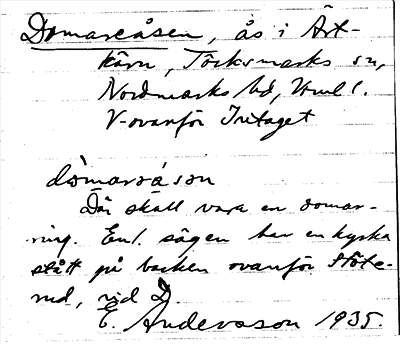 Domareåsen, ås i Årt-
kärn, Töcksmarks sn,
Nordmarks hd, Vrml l.
V-ovanför Intaget
dòmaråsən
Där skall vara en domar-
ring. Enl. sägen har en kyrka
stått på backen ovanför Stöte-
rud, vid D.
E. Andersson 1935.